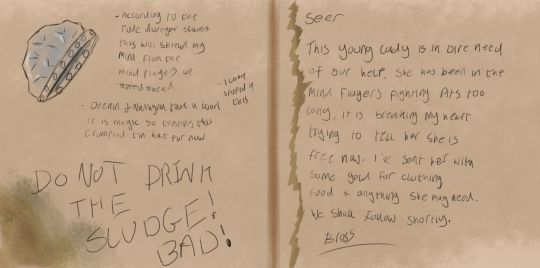 - According to the
rude duregor slaves
this will shield my
mind from the
mind flayers up
ahead
- I look
stupid in
this
- Deenin & Nalavara took a look
it is magic so trusting this
crumpled tin hat for now
DO NOT DRINK
THE
SLUDGE!
BAD!
Seer,
This young lady is in dire need
of our help. She has been in the
Mind flayers fighting pits too
long, it is breaking my heart
trying to tell her she is
free now. I've sent her with
some gold for clothing
food & anything she may need.
We shall follow shortly.